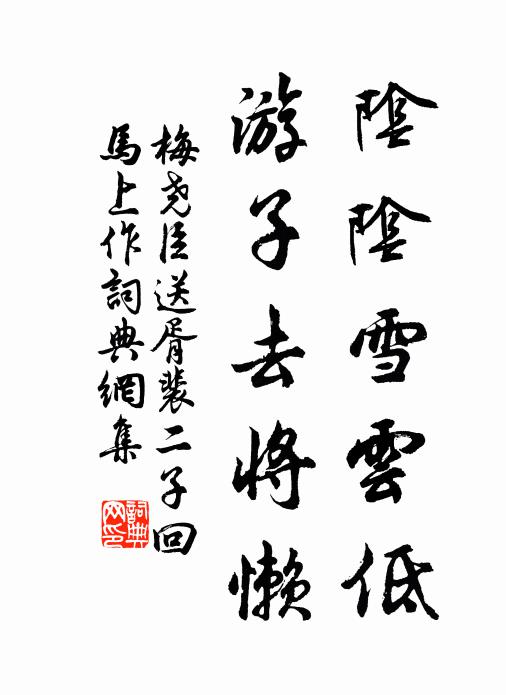 陰陰雪雲低
游子去將懶
梅尧臣送胥裴二子回
馬上作詞典網集
詞典
网印